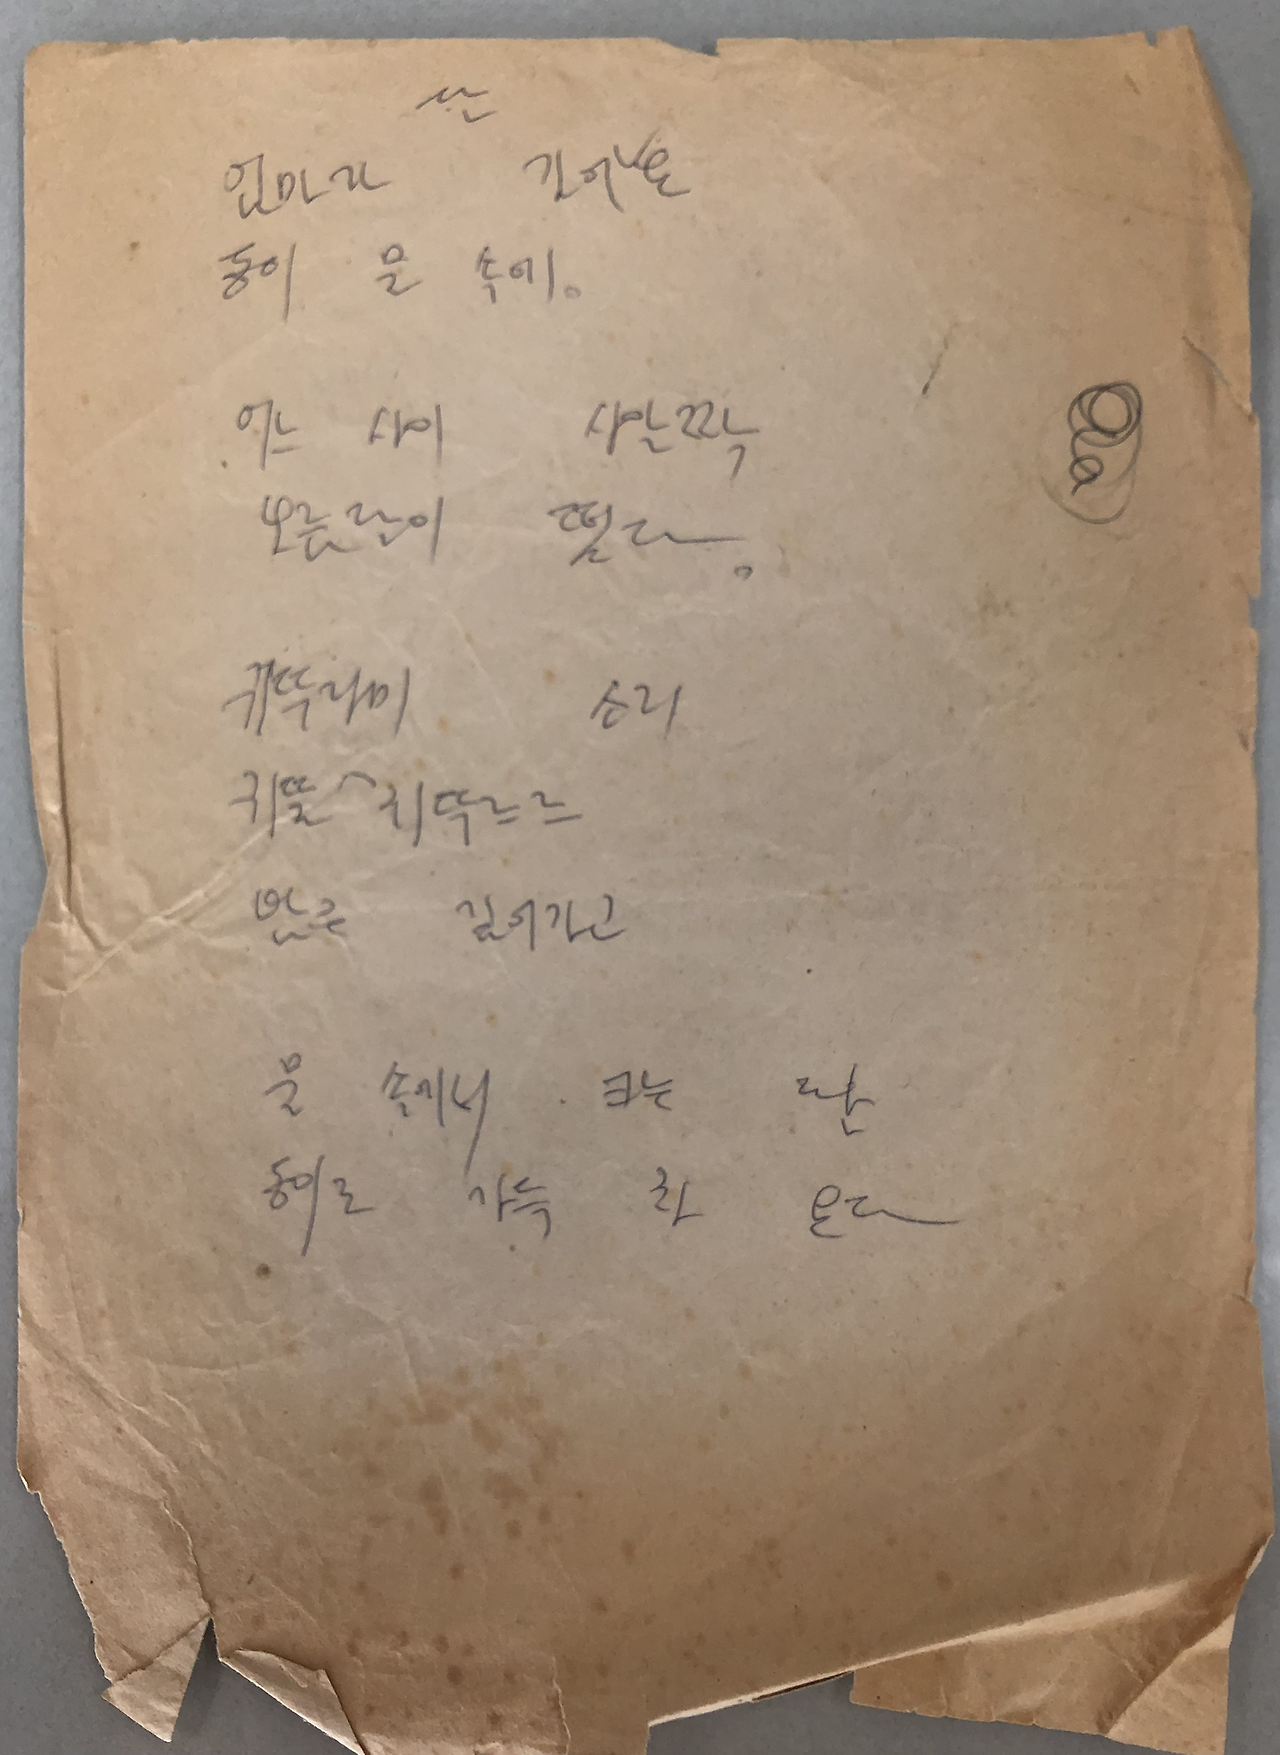 엄마가 길어 온
동이 물 속에。
어느 사이 사알짝
보름달이 떴다。
귀뚜라미 소리
귀뚤 귀뚜르르
밤은 깊어가고
물 속에서 크는 달
동이로 가득 차 온다